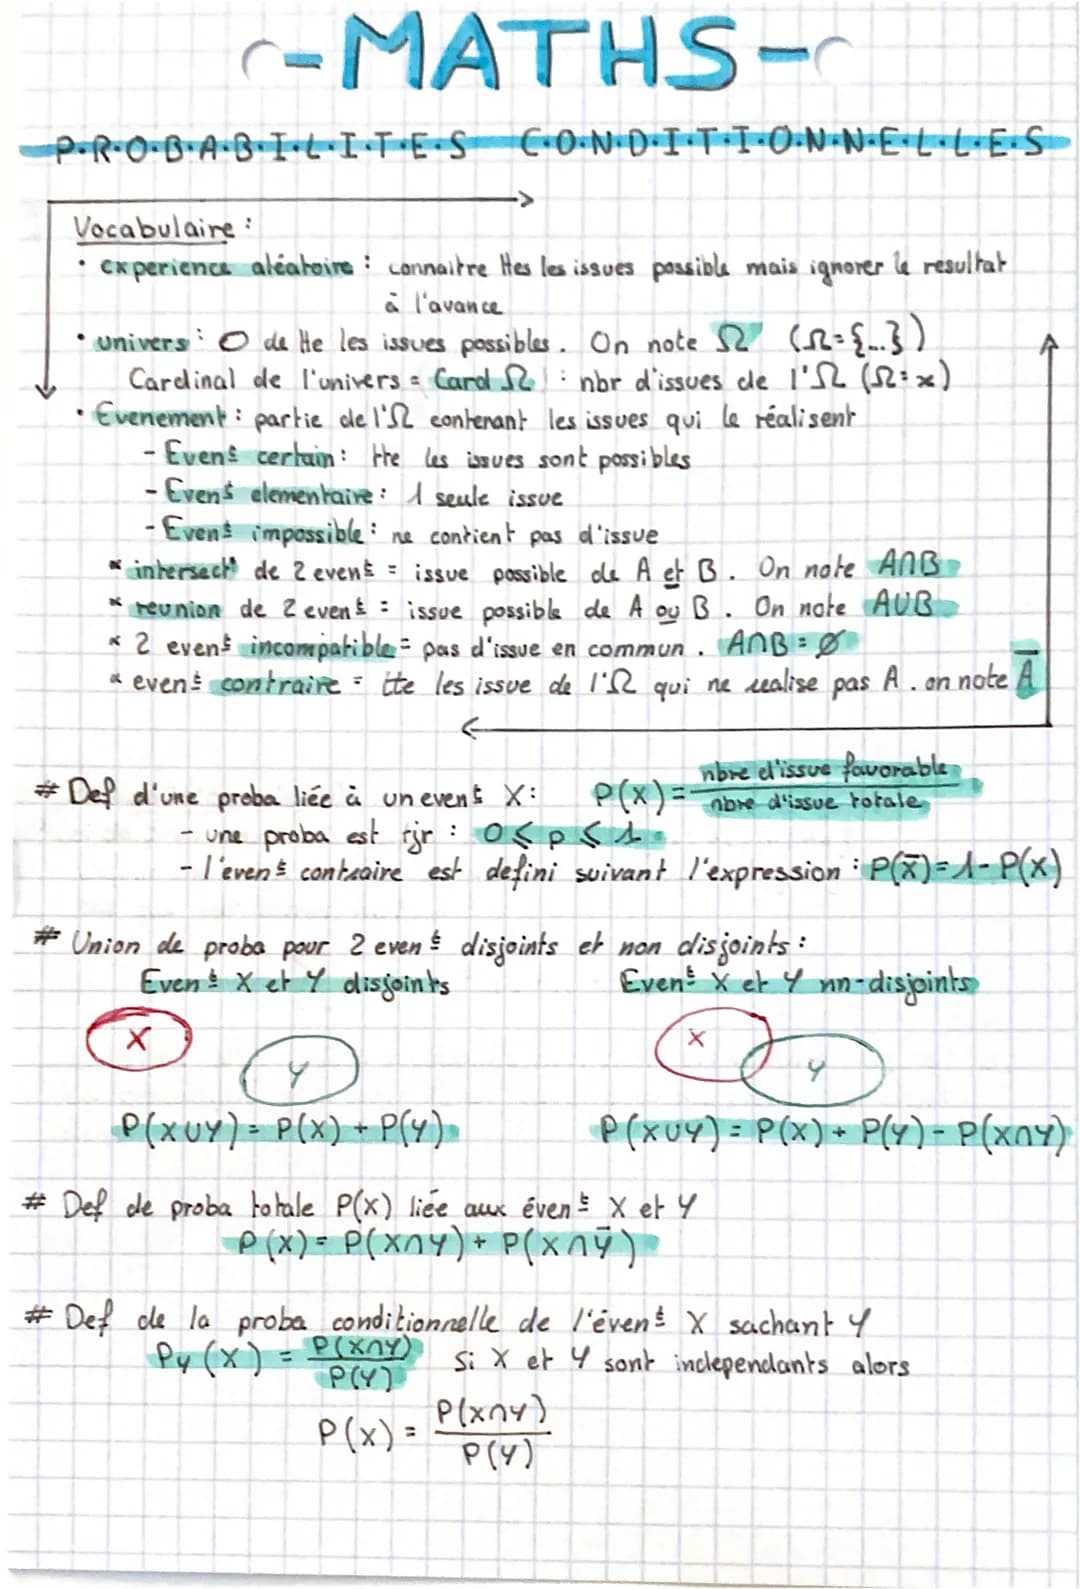 -MATHS-
P.R.O.B.A.B.I.L.I.T.E.S C.O.N.D.I.T.I.O.N.N.E.L.L.E.S
Vocabulaire :
• experience aléatoire : connaitre ttes les issues possible mais ignorer le resultat
à l'avance
• univers : O de tte les issues possibles. On note Ω (Ω={...})
Cardinal de l'univers = Card Ω : nbr d'issues de l'Ω (Ω=x)
• Evenement : partie de l'Ω contenant les issues qui le réalisent
- Even^t certain : tte les issues sont possibles
- Even^t elementaire : 1 seule issue
- Even^t impossible : ne contient pas d'issue
* intersect° de 2 even^t = issue possible de A et B. On note A∩B
* reunion de 2 even^t = issue possible de A ou B. On note A∪B
* 2 even^t incompatible = pas d'issue en commun. A∩B = ∅
* even^t contraire = tte les issue de l'Ω qui ne realise pas A. on note A̅
# Def d'une proba liée à un even^t X : P(X) = nbre d'issue favorable / nbre d'issue totale
- une proba est tjr : 0 ⩽ p ⩽ 1
- l'even^t contraire est defini suivant l'expression : P(x̅) = 1 - P(X)
# Union de proba pour 2 even^t disjoints et non disjoints :
Even^t X et Y disjoints Even^t X et Y nn-disjoints
X Y X Y
P(X∪Y) = P(X) + P(Y) P(X∪Y) = P(X) + P(Y) - P(X∩Y)
# Def de proba totale P(X) liée aux évén^t X et Y
P(X) = P(X∩Y) + P(X∩Y̅)
# Def de la proba conditionnelle de l'évén^t X sachant Y
P_Y(X) = P(X∩Y) / P(Y) Si X et Y sont independants alors
P(X) = P(X∩Y) / P(Y)